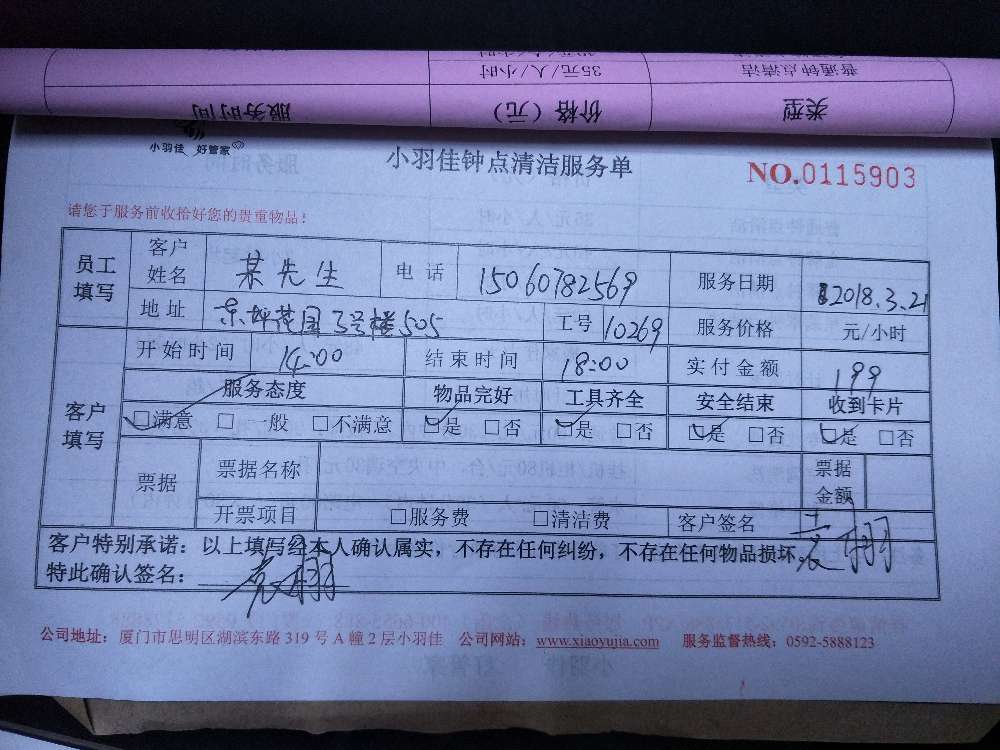 普通钟点清洁 35元/人/小时
类型 价格（元） 服务时间
小羽佳 好管家
小羽佳钟点清洁服务单
NO.0115903
请您于服务前收拾好您的贵重物品！
员工填写 客户姓名 某先生 电话 15060782569 服务日期 2018.3.21
地址 花园3号楼505 工号 10269 服务价格 元/小时
客户填写 开始时间 14:00 结束时间 18:00 实付金额 199
服务态度 物品完好 工具齐全 安全结束 收到卡片
☑满意 □一般 □不满意 ☑是 □否 ☑是 □否 ☑是 □否 ☑是 □否
票据 票据名称 票据金额
开票项目 □服务费 □清洁费 客户签名
客户特别承诺：以上填写经本人确认属实，不存在任何纠纷，不存在任何物品损坏。
特此确认签名：
公司地址：厦门市思明区湖滨东路319号A幢2层小羽佳 公司网站：www.xiaoyujia.com 服务监督热线：0592-5888123